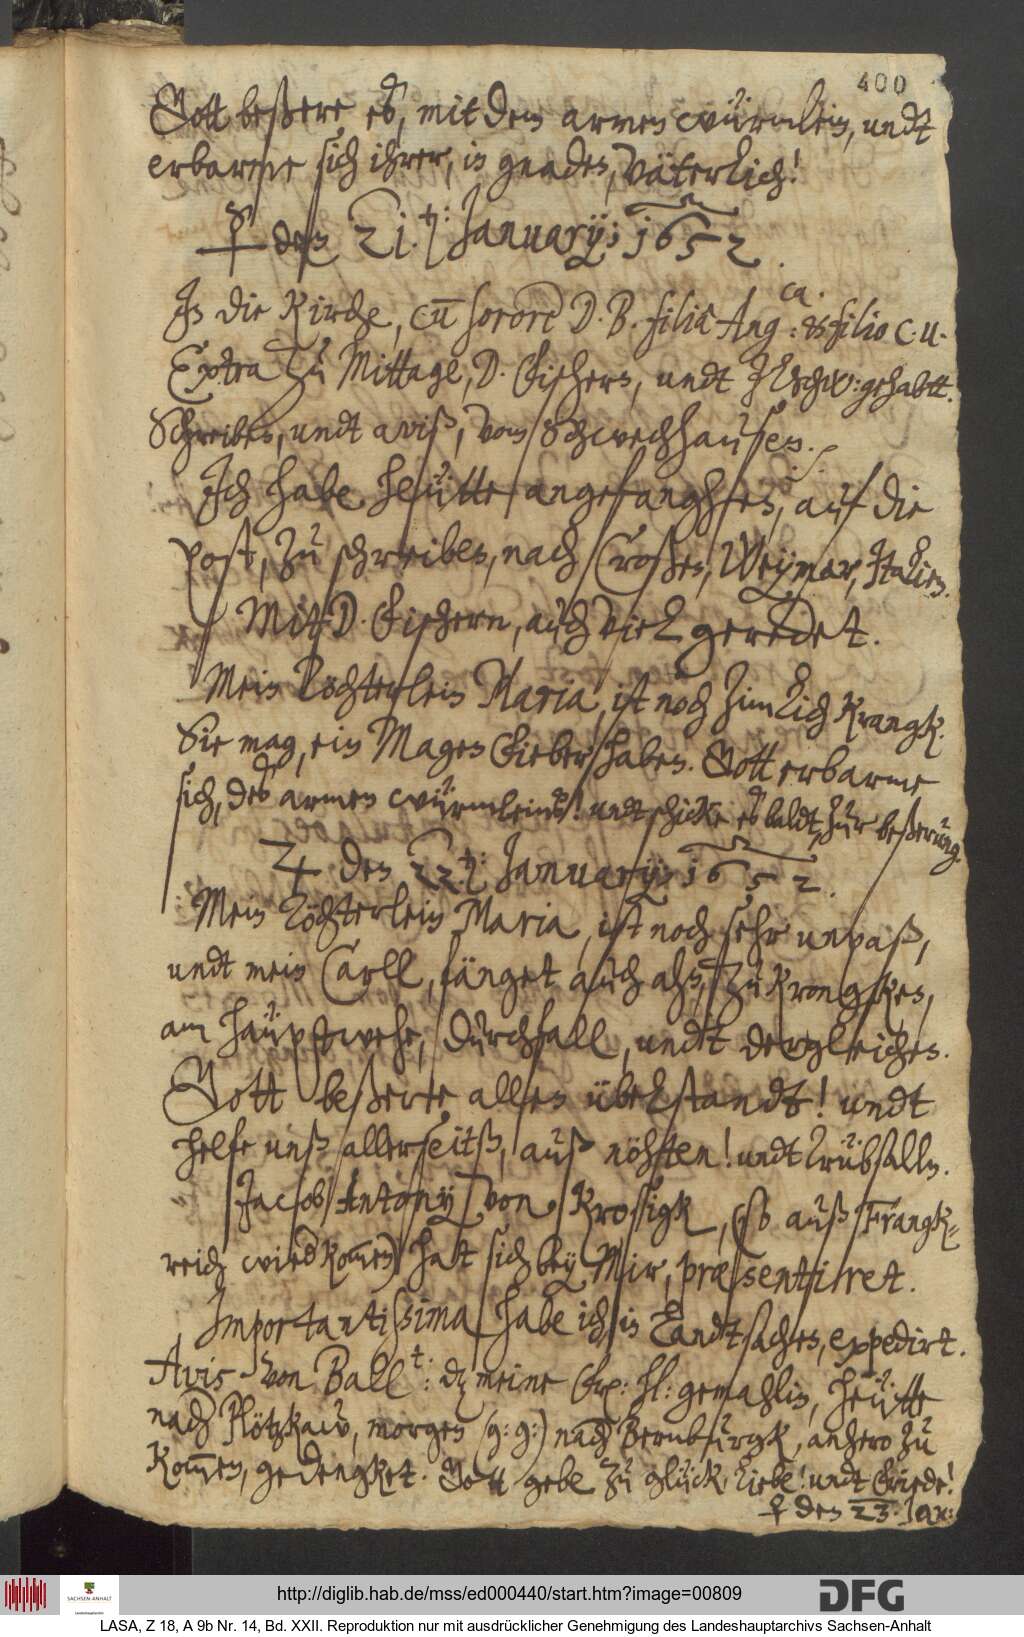 400
Gott beßere es, mit dem armen würmlein, undt
erbarme sich ihrer, in gnaden, väterlich!
☿ den 21.t: January; 1652.
In die Kirche, cu̅ sorore D. B. filia Ang: & filio C. H. ca.
Extra zu Mittage, D. Fischern, undt gehabtt.
Schreiben, undt aviß, von Schwechhausen.
Ich habe heütte angefanghen, auf die
post, zu schreiben, nach Croßen, Weymar, Italien.
Mitt D. Fischern, auch viel geredet.
Mein Töchterlein Maria, ist noch zimlich Krangk.
Sie mag, ein Magen Fieber haben. Gott erbarme
sich, des armen würmleins! undt schicke es baldt, zur beßerung.
♃ den 22.t: January; 1652.
Mein Töchterlein Maria, ist noch sehr unpaß,
undt mein Carll, fänget auch ahn, zu Krongken,
am Haüptwehe, durchfall, undt dergleichen.
Gott beßere allen übelstandt! undt
helfe unß allerseitß, auß nöhten! undt Trübsalln.
Jacob Antony von Krosigk, (so auß Frangk-
reich wied kom̅en) hatt sich bey Mir, præsentirret.
Importantissima habe ich in Landtsachen, expedirt.
Avis von Ball:t dz meine Frew: hl: gemahlin, heütte
nach Plötzkaw, morgen (g: g:) nach Bernburgk, anhero zu
Kom̅en, gedengket. Gott gebe zu glück, liebe! undt Friede!
♀ den 23. Jan:
http://diglib.hab.de/mss/ed000440/start.htm?image=00809
SACHSEN-ANHALT
Landeshauptarchiv
DFG
LASA, Z 18, A 9b Nr. 14, Bd. XXII. Reproduktion nur mit ausdrücklicher Genehmigung des Landeshauptarchivs Sachsen-Anhalt